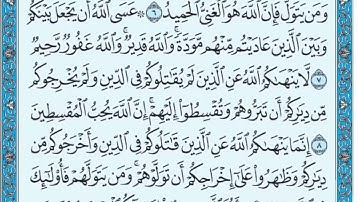 وَمَن يَتَوَلَّ فَإِنَّ ٱللَّهَ هُوَ ٱلْغَنِىُّ ٱلْحَمِيدُ ٦ ۞ عَسَى ٱللَّهُ أَن يَجْعَلَ بَيْنَكُمْ
وَبَيْنَ ٱلَّذِينَ عَادَيْتُم مِّنْهُم مَّوَدَّةً ۚ وَٱللَّهُ قَدِيرٌ ۚ وَٱللَّهُ غَفُورٌ رَّحِيمٌ
٧ لَّا يَنْهَىٰكُمُ ٱللَّهُ عَنِ ٱلَّذِينَ لَمْ يُقَـٰتِلُوكُمْ فِى ٱلدِّينِ وَلَمْ يُخْرِجُوكُم
مِّن دِيَـٰرِكُمْ أَن تَبَرُّوهُمْ وَتُقْسِطُوٓا۟ إِلَيْهِمْ ۚ إِنَّ ٱللَّهَ يُحِبُّ ٱلْمُقْسِطِينَ
٨ إِنَّمَا يَنْهَىٰكُمُ ٱللَّهُ عَنِ ٱلَّذِينَ قَـٰتَلُوكُمْ فِى ٱلدِّينِ وَأَخْرَجُوكُم مِّن
دِيَـٰرِكُمْ وَظَـٰهَرُوا۟ عَلَىٰٓ إِخْرَاجِكُمْ أَن تَوَلَّوْهُمْ ۚ وَمَن يَتَوَلَّهُمْ فَأُو۟لَـٰٓئِكَ